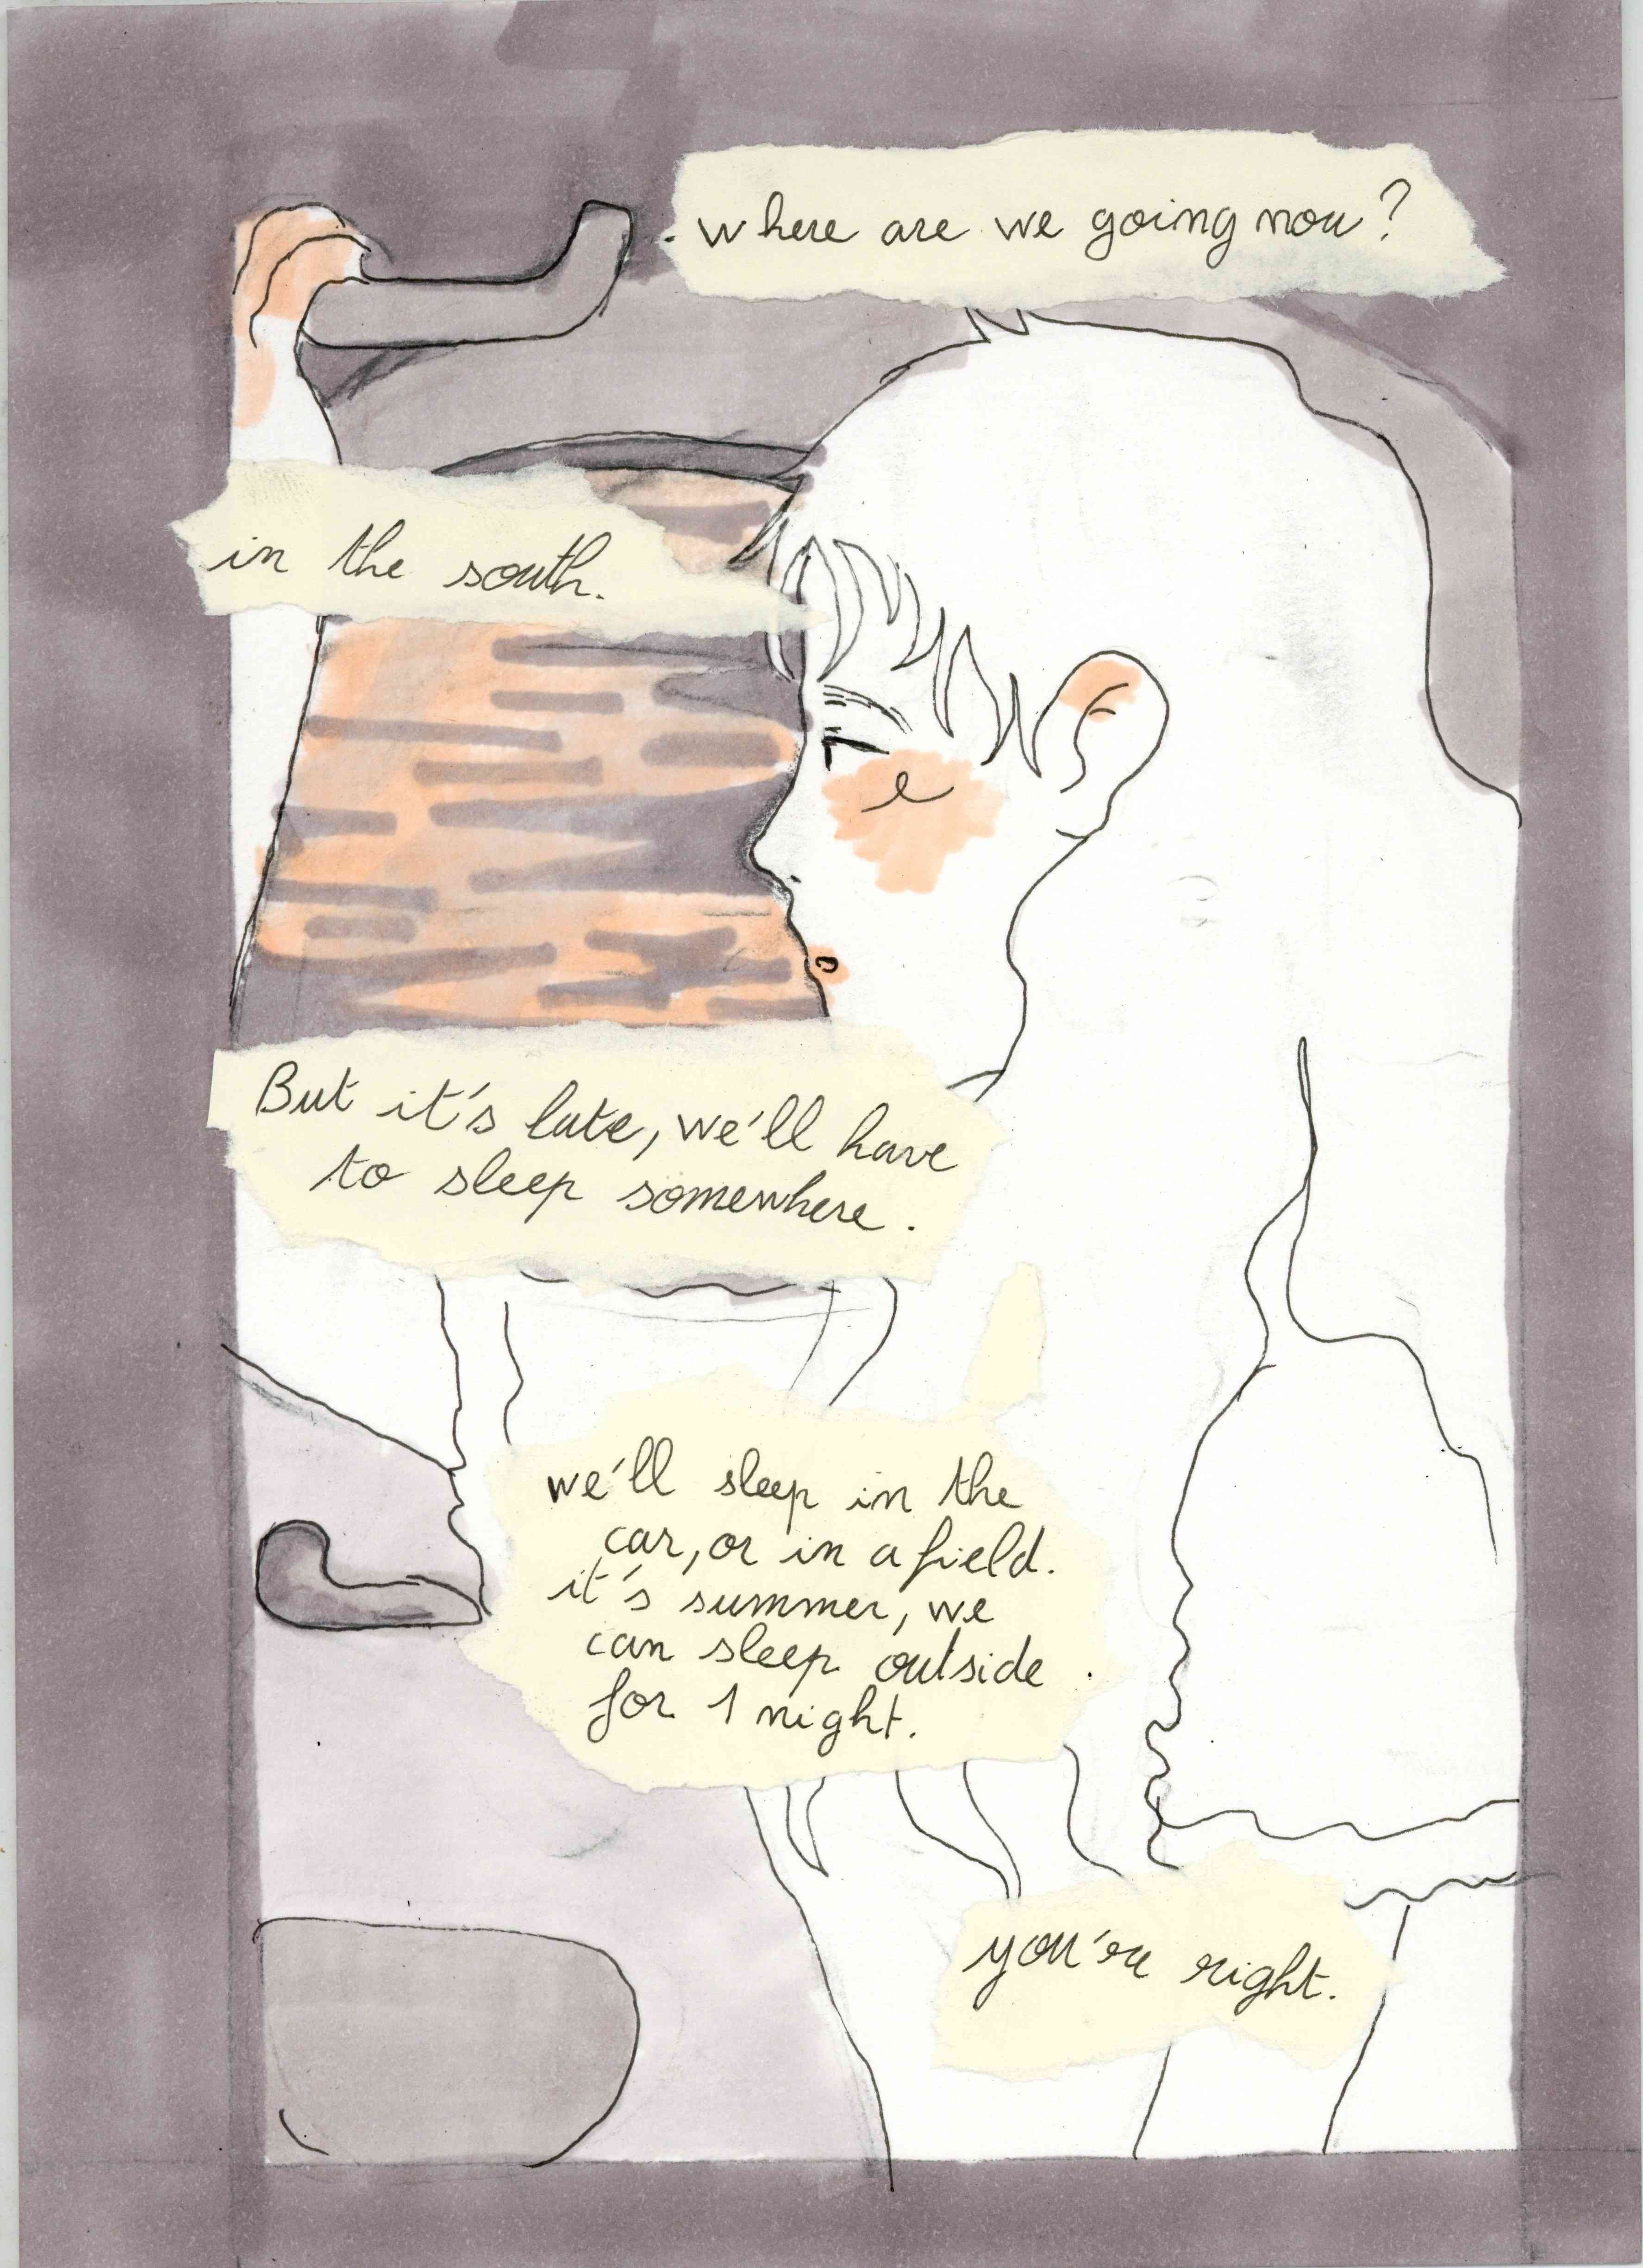 where are we going now?
in the south.
But it's late, we'll have
to sleep somewhere.
we'll sleep in the
car, or in a field.
it's summer, we
can sleep outside
for 1 night.
you're right.